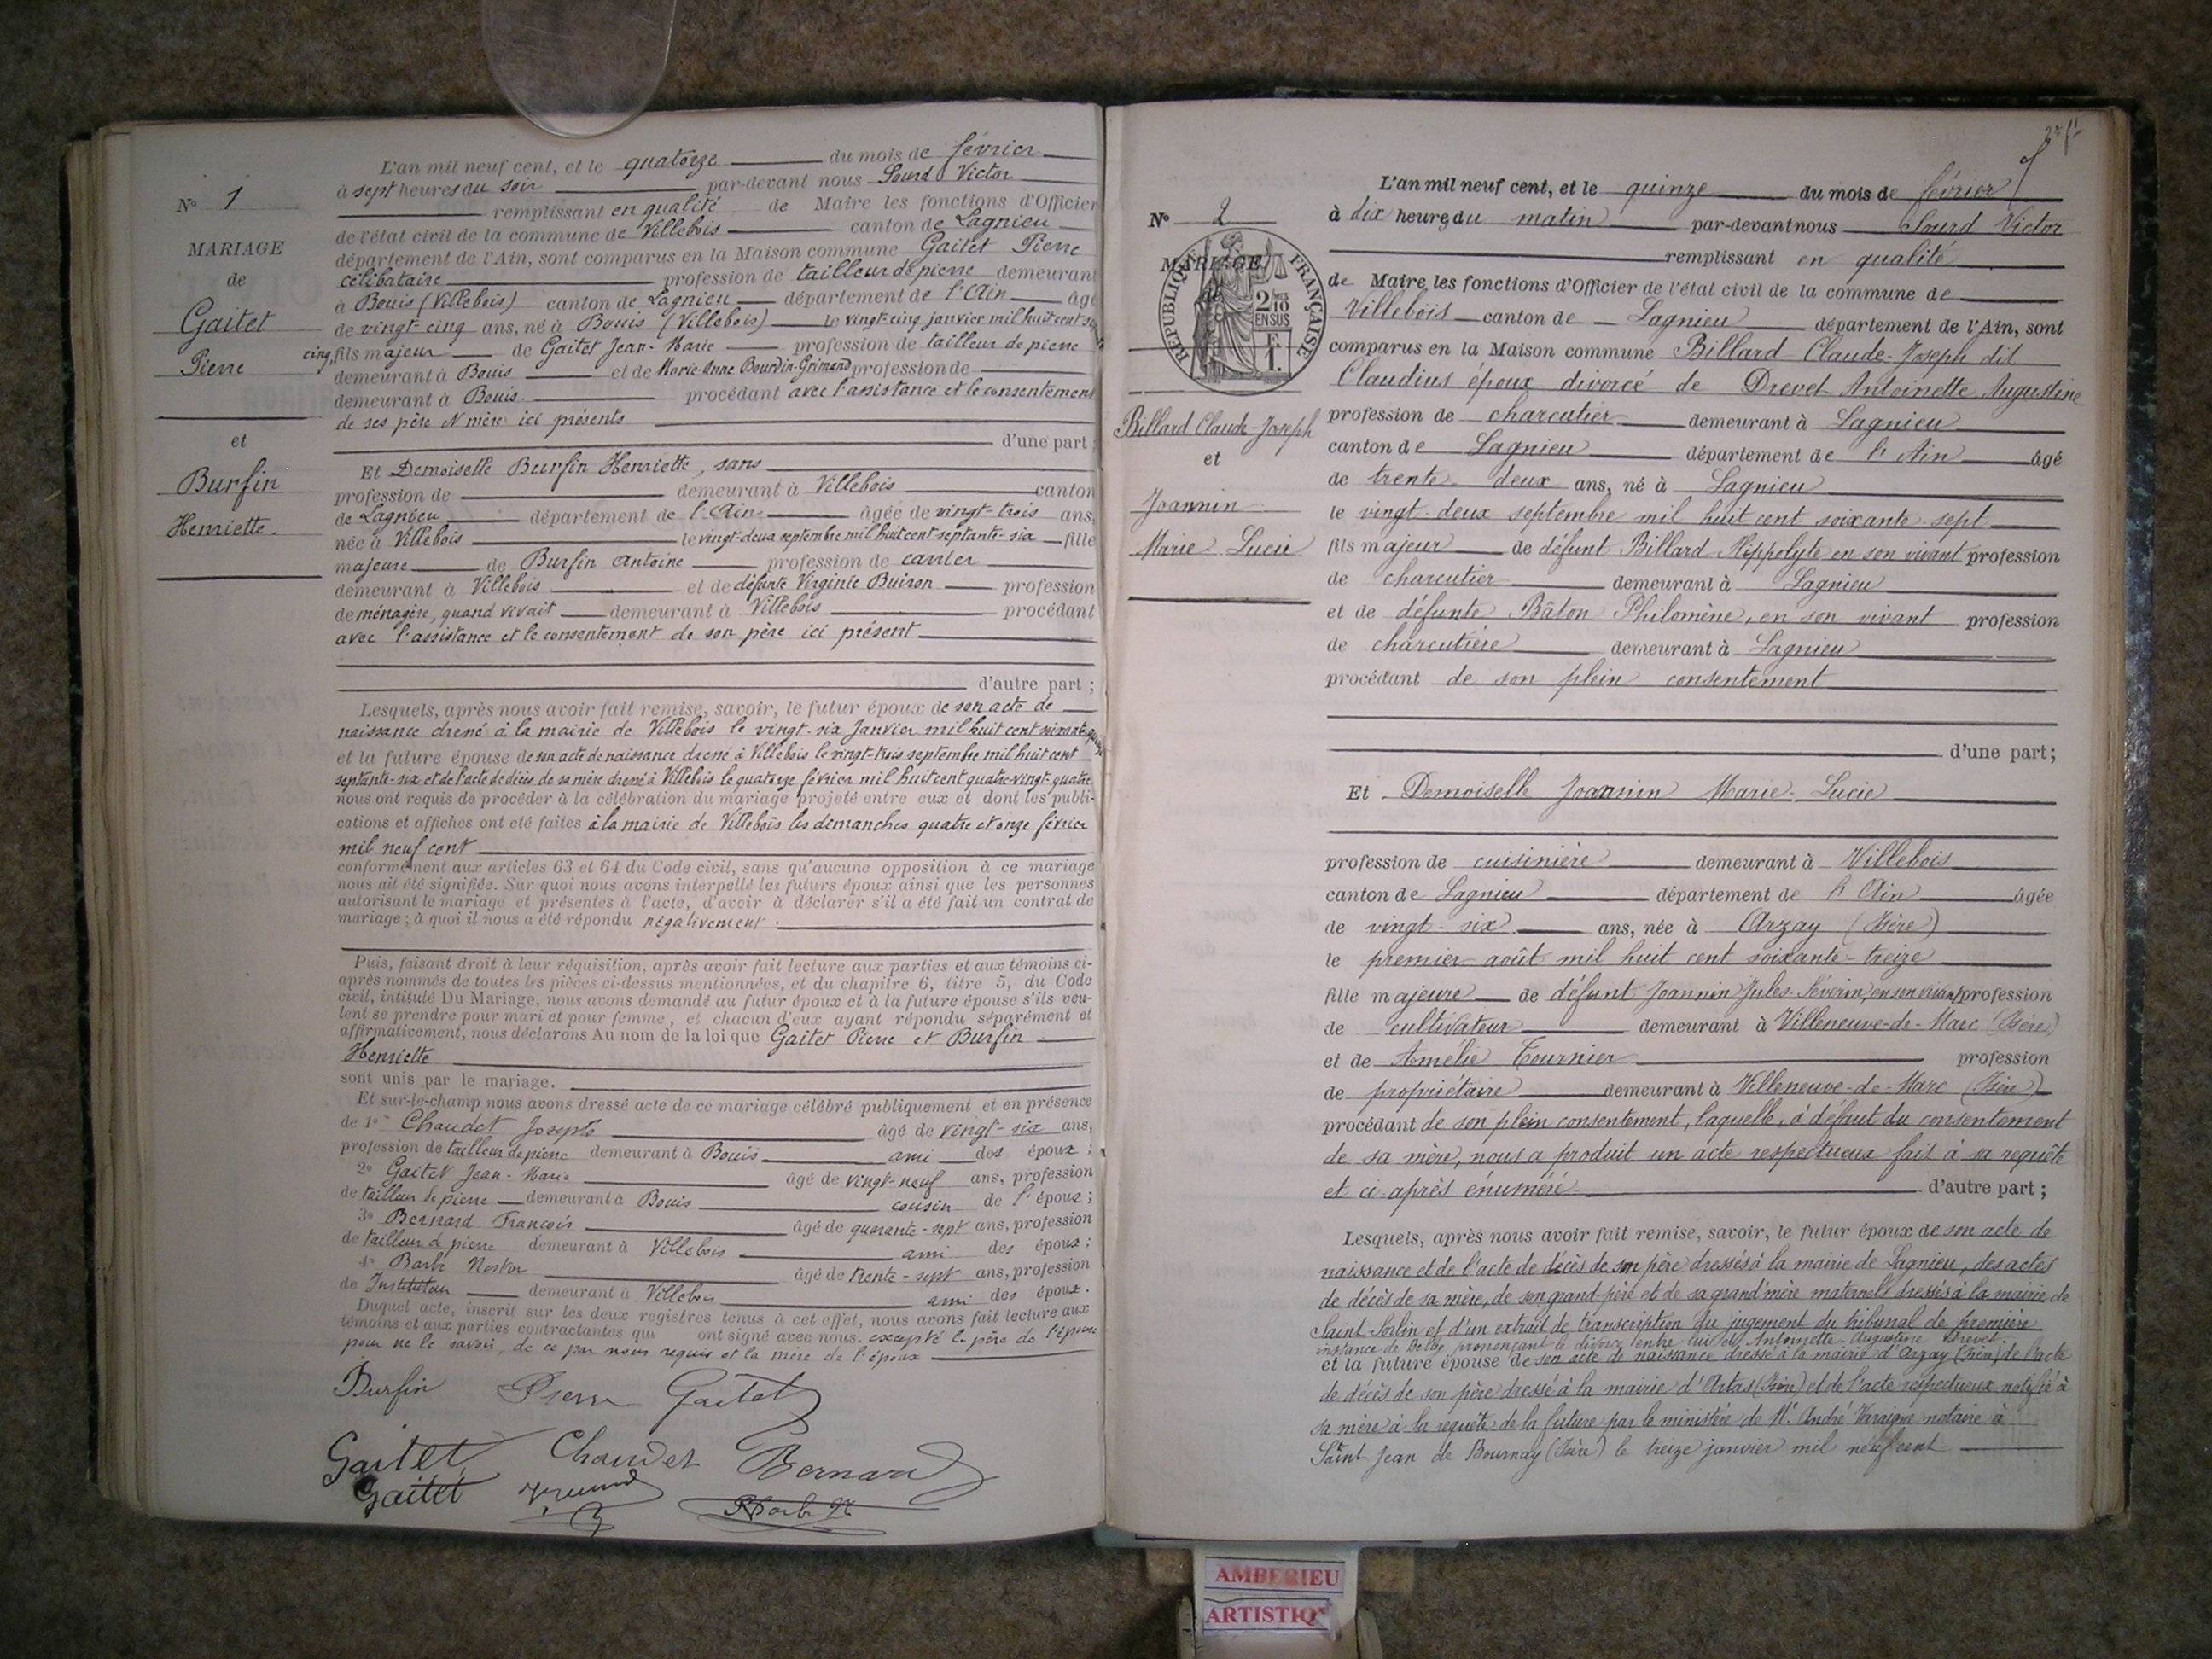 L'an mil neuf cent, et le quatorze du mois de février
N° 1
à sept heures du soir par-devant nous Sourd Victor
remplissant en qualité de Maire les fonctions d'Officier
de l'état civil de la commune de Villebois canton de Lagnieu
MARIAGE
de
Gaitet
Pierre
et
Burfin
Henriette.
département de l'Ain, sont comparus en la Maison commune Gaitet Pierre
célibataire profession de tailleur de pierre demeurant
à Bouis (Villebois) canton de Lagnieu département de l'Ain âgé
de vingt-cinq ans, né à Bouis (Villebois) le vingt-cinq janvier mil huit cent
cinq, fils majeur de Gaitet Jean-Marie profession de tailleur de pierre
demeurant à Bouis et de Marie-Anne Bourdin-Grimaud profession de
demeurant à Bouis. procédant avec l'assistance et le consentement
de ses père & mère ici présents
d'une part;
Et Demoiselle Burfin Henriette, sans
profession de demeurant à Villebois canton
de Lagnieu département de l'Ain âgée de vingt-trois ans,
née à Villebois le vingt-deux septembre mil huit cent septante-six fille
majeure de Burfin Antoine profession de carrier
demeurant à Villebois et de défunte Virginie Buiron profession
de ménagère, quand vivait demeurant à Villebois procédant
avec l'assistance et le consentement de son père ici présent
d'autre part;
Lesquels, après nous avoir fait remise, savoir, le futur époux de son acte de
naissance dressé à la mairie de Villebois le vingt-six Janvier mil huit cent soixante quinze
et la future épouse de son acte de naissance dressé à Villebois le vingt-trois septembre mil huit cent
septante-six et de l'acte de décès de sa mère dressé à Villebois le quatorze février mil huit cent quatre-vingt-quatre
nous ont requis de procéder à la célébration du mariage projeté entre eux et dont les publi-
cations et affiches ont été faites à la mairie de Villebois les dimanches quatre et onze février
mil neuf cent
conformément aux articles 63 et 64 du Code civil, sans qu'aucune opposition à ce mariage
nous ait été signifiée. Sur quoi nous avons interpellé les futurs époux ainsi que les personnes
autorisant le mariage et présentes à l'acte, d'avoir à déclarer s'il a été fait un contrat de
mariage; à quoi il nous a été répondu négativement.
Puis, faisant droit à leur réquisition, après avoir fait lecture aux parties et aux témoins ci-
après nommés de toutes les pièces ci-dessus mentionnées, et du chapitre 6, titre 5, du Code
civil, intitulé Du Mariage, nous avons demandé au futur époux et à la future épouse s'ils veu-
lent se prendre pour mari et pour femme, et chacun d'eux ayant répondu séparément et
affirmativement, nous déclarons Au nom de la loi que Gaitet Pierre et Burfin
Henriette
sont unis par le mariage.
Et sur-le-champ nous avons dressé acte de ce mariage célébré publiquement et en présence
de 1° Chaudet Joseph âgé de vingt-six ans,
profession de tailleur de pierre demeurant à Bouis ami des époux;
2° Gaitet Jean-Marie âgé de vingt-neuf ans, profession
de tailleur de pierre demeurant à Bouis cousin de l'époux;
3° Bernard François âgé de quarante-sept ans, profession
de tailleur de pierre demeurant à Villebois ami des époux;
4° Barbe Nestor âgé de trente-sept ans, profession
de Instituteur demeurant à Villebois ami des époux.
Duquel acte, inscrit sur les deux registres tenus à cet effet, nous avons fait lecture aux
témoins et aux parties contractantes qui ont signé avec nous. excepté le père de l'épouse
pour ne le savoir, de ce par nous requis et la mère de l'époux
Burfin Pierre Gaitet
Gaitet Chaudet Bernard
Gaitet
L'an mil neuf cent, et le quinze du mois de février
N° 2
à dix heures du matin par-devant nous Sourd Victor
remplissant en qualité
MARIAGE
RÉPUBLIQUE FRANÇAISE
2/10 EN SUS
F. 1.
Billard Claude-Joseph
et
Joannin
Marie-Lucie
de Maire les fonctions d'Officier de l'état civil de la commune de
Villebois canton de Lagnieu département de l'Ain, sont
comparus en la Maison commune Billard Claude-Joseph dit
Claudius époux divorcé de Drevet Antoinette Augustine
profession de charcutier demeurant à Lagnieu
canton de Lagnieu département de l'Ain âgé
de trente-deux ans, né à Lagnieu
le vingt-deux septembre mil huit cent soixante-sept
fils majeur de défunt Billard Hippolyte en son vivant profession
de charcutier demeurant à Lagnieu
et de défunte Bâton Philomène, en son vivant profession
de charcutière demeurant à Lagnieu
procédant de son plein consentement
d'une part;
Et Demoiselle Joannin Marie-Lucie
profession de cuisinière demeurant à Villebois
canton de Lagnieu département de l'Ain âgée
de vingt-six ans, née à Arzay (Isère)
le premier août mil huit cent soixante-treize
fille majeure de défunt Joannin Jules-Séverin, en son vivant profession
de cultivateur demeurant à Villeneuve-de-Marc (Isère)
et de Amélie Tournier profession
de propriétaire demeurant à Villeneuve-de-Marc (Isère)
procédant de son plein consentement, laquelle, à défaut du consentement
de sa mère, nous a produit un acte respectueux fait à sa requête
et ci-après énuméré d'autre part;
Lesquels, après nous avoir fait remise, savoir, le futur époux de son acte de
naissance et de l'acte de décès de son père dressés à la mairie de Lagnieu, des actes
de décès de sa mère, de son grand-père et de sa grand'mère maternels dressés à la mairie de
Saint-Sorlin et d'un extrait de transcription du jugement du tribunal de première
instance de Belley prononçant le divorce entre lui et Antoinette-Augustine Drevet.
et la future épouse de son acte de naissance dressé à la mairie d'Arzay (Isère), de l'acte
de décès de son père dressé à la mairie d'Artas (Isère) et de l'acte respectueux notifié à
sa mère à la requête de la future par le ministère de Me André Varaigne notaire à
Saint Jean de Bournay (Isère) le treize janvier mil neuf cent
AMBERIEU
ARTISTIQ